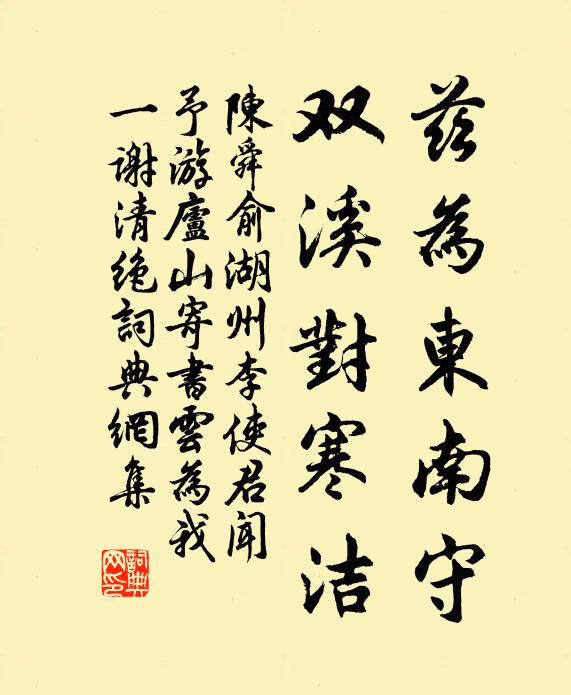 兹為東南守
双溪對寒洁
陳舜俞湖州李使君聞
予游廬山寄書雲為我
一謝清絶詞典網集
詞典
网印